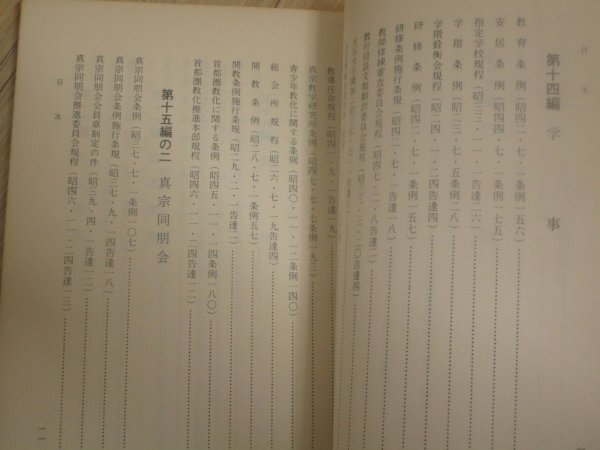 目次
第十四編 学事
教育条例(昭四七・七・一条例一五六)
安居条例(昭四四・七・一条例一七五)
指定学校規程(昭三三・一・一告達一六)
学階条例(昭二三・七・五条例二八)
学階銓衡会規程(昭四一・一・二四告達一)
研修条例(昭四七・七・一条例一五七)
研修条例施行条規(昭四七・七・一告達八)
教師修練審議委員会規程(昭四七・二・八告達二)
総会所規程(昭二六・七・一九告達四)
開教条例(昭二八・七・一条例五七)
開教条例施行条規(昭二九・二・一告達二)
首都圏教化に関する条例(昭四五・一一・一四条例一八〇)
首都圏教化推進本部規程(昭四六・一一・二四告達一二)
青少年教化に関する条例(昭四〇・一一・一二条例一四〇)
第十五編の二 真宗同朋会
真宗同朋会条例(昭三七・七・一条例一〇七)
真宗同朋会条例施行条規(昭三七・九・一四告達一八)
真宗同朋会会員章制定の件(昭三九・四・一告達八)
真宗同朋会推進委員会規程(昭四六・一一・二四告達一三)
目次
一一